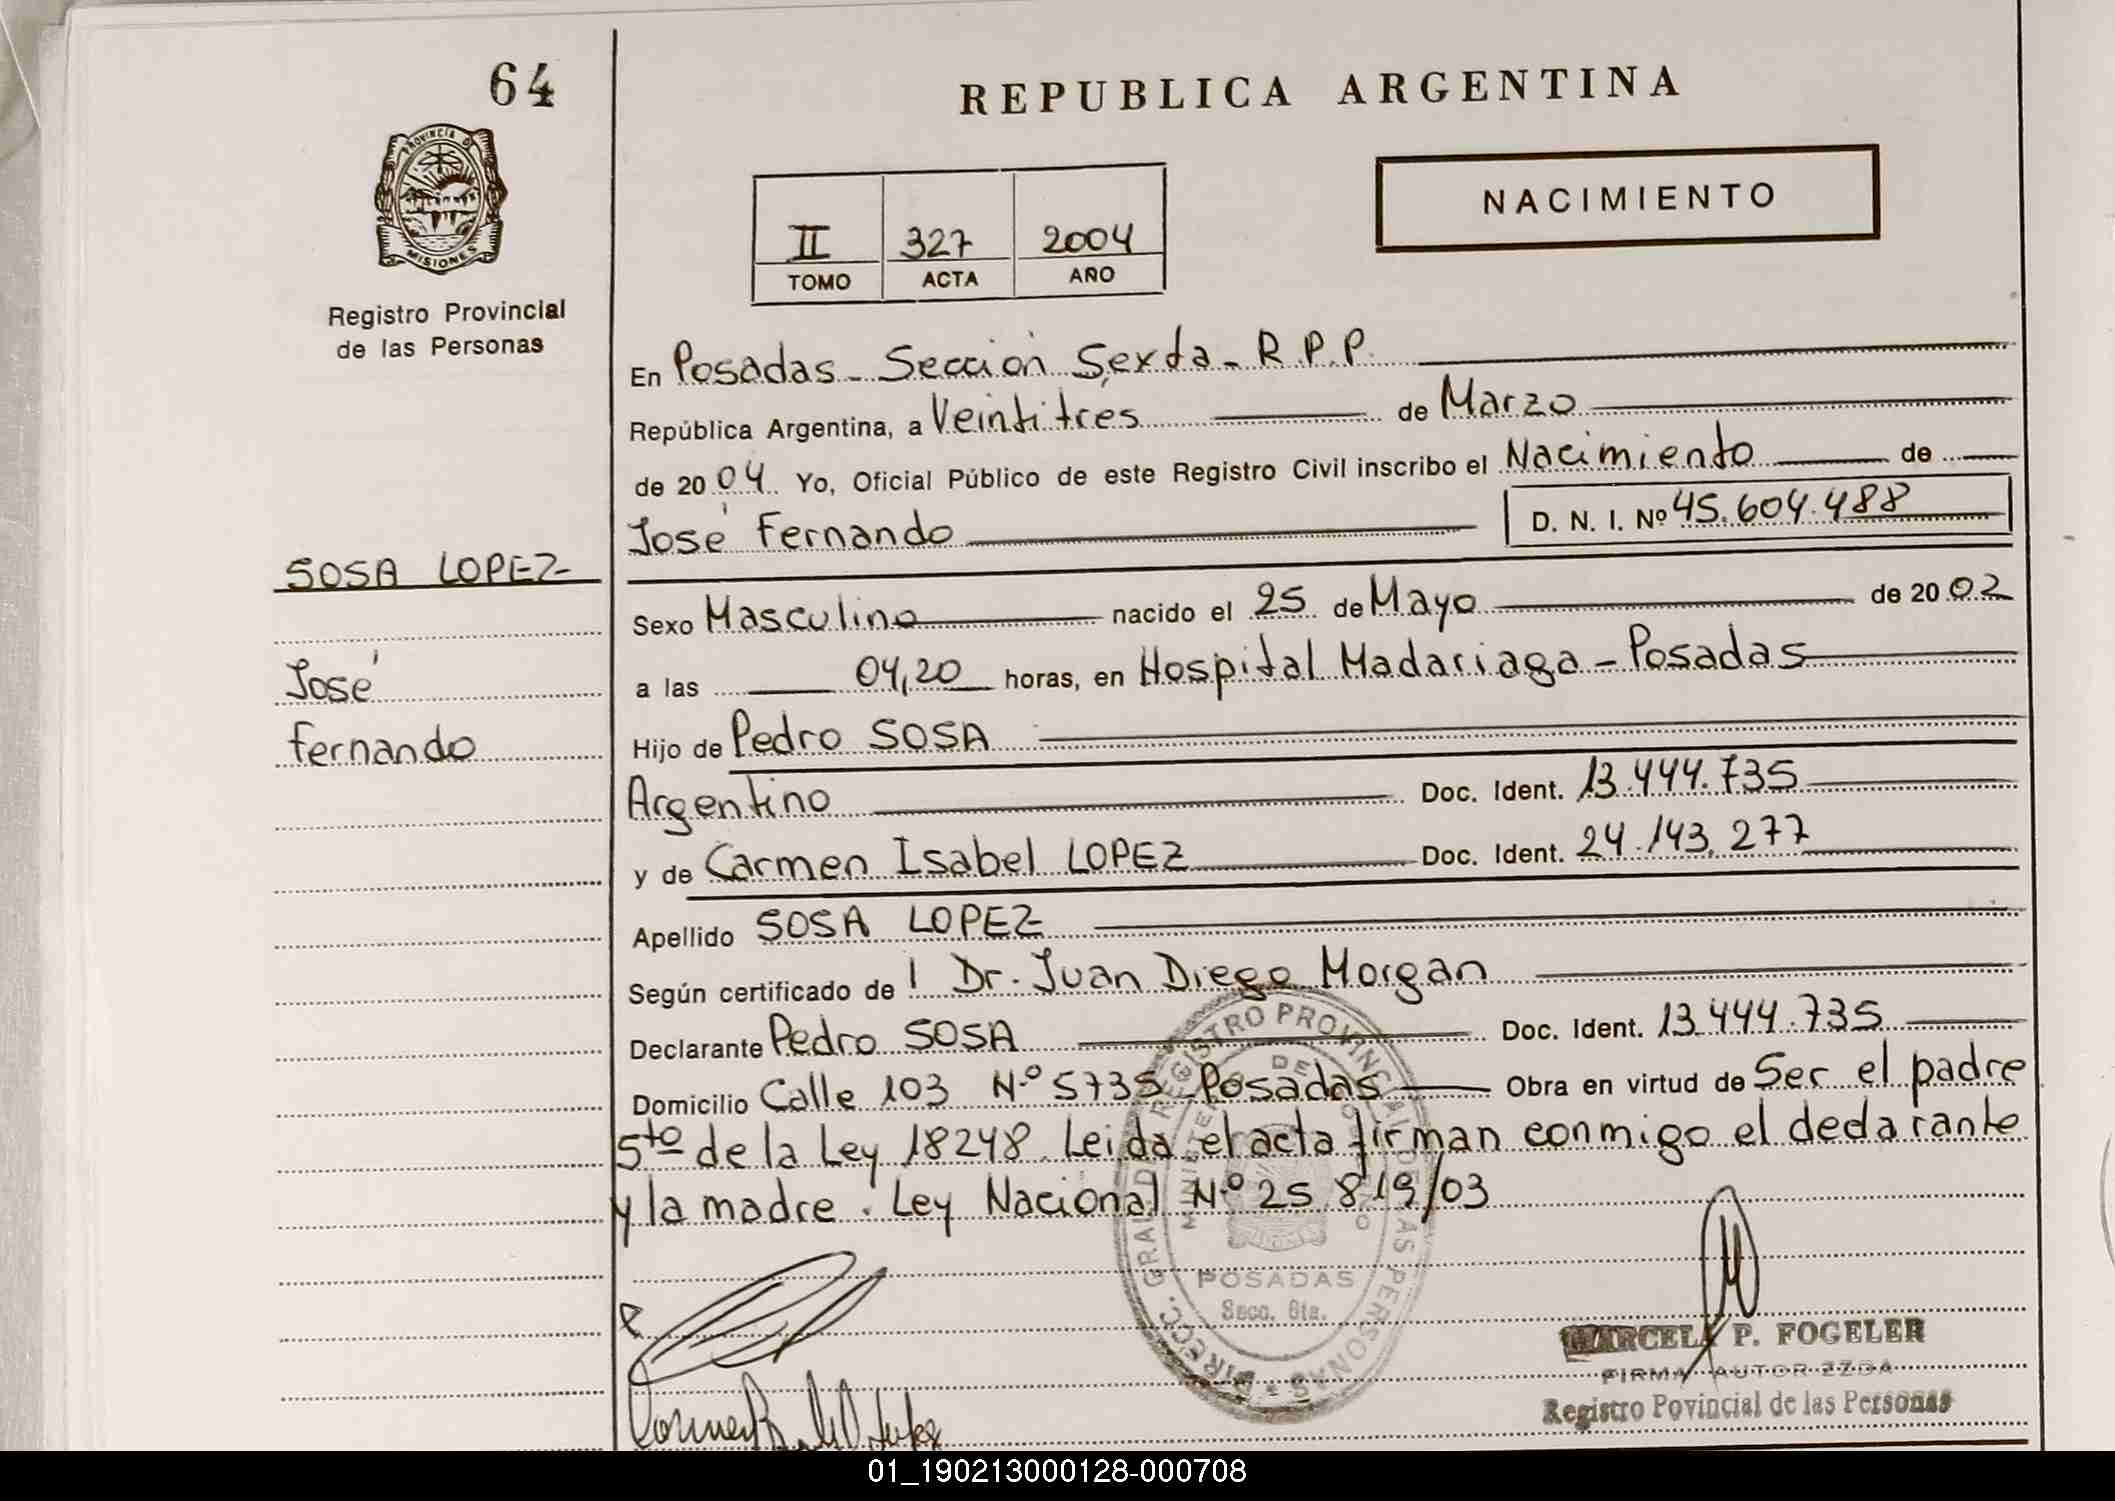 64
PROVINCIA D
MISIONES
Registro Provincial
de las Personas
REPUBLICA ARGENTINA
NACIMIENTO
II 327 2004
TOMO ACTA AÑO
En Posadas - Sección Sexta - R.P.P.
República Argentina, a Veintitres de Marzo
de 2004 Yo, Oficial Público de este Registro Civil inscribo el Nacimiento de
José Fernando D. N. I. Nº 45.604.488
SOSA LOPEZ
José
Fernando
Sexo Masculino nacido el 25 de Mayo de 2002
a las 04,20 horas, en Hospital Madariaga - Posadas
Hijo de Pedro SOSA
Argentino Doc. Ident. 13.444.735
y de Carmen Isabel LOPEZ Doc. Ident. 24.143.277
Apellido SOSA LOPEZ
Según certificado de l Dr. Juan Diego Morgan
Declarante Pedro SOSA Doc. Ident. 13.444.735
Domicilio Calle 103 Nº 5735 Posadas Obra en virtud de Ser el padre
5to de la Ley 18248. Leida el acta firman conmigo el declarante
y la madre. Ley Nacional Nº 25.819/03
DIRECC. GRAL DE REGISTRO PROVINCIAL DE LAS PERSONAS
MINISTERIO DE GOBIERNO
POSADAS
Secc. 6ta.
MARCELA P. FOGELER
FIRMA AUTORIZZDA
Registro Povincial de las Personas
01_190213000128-000708